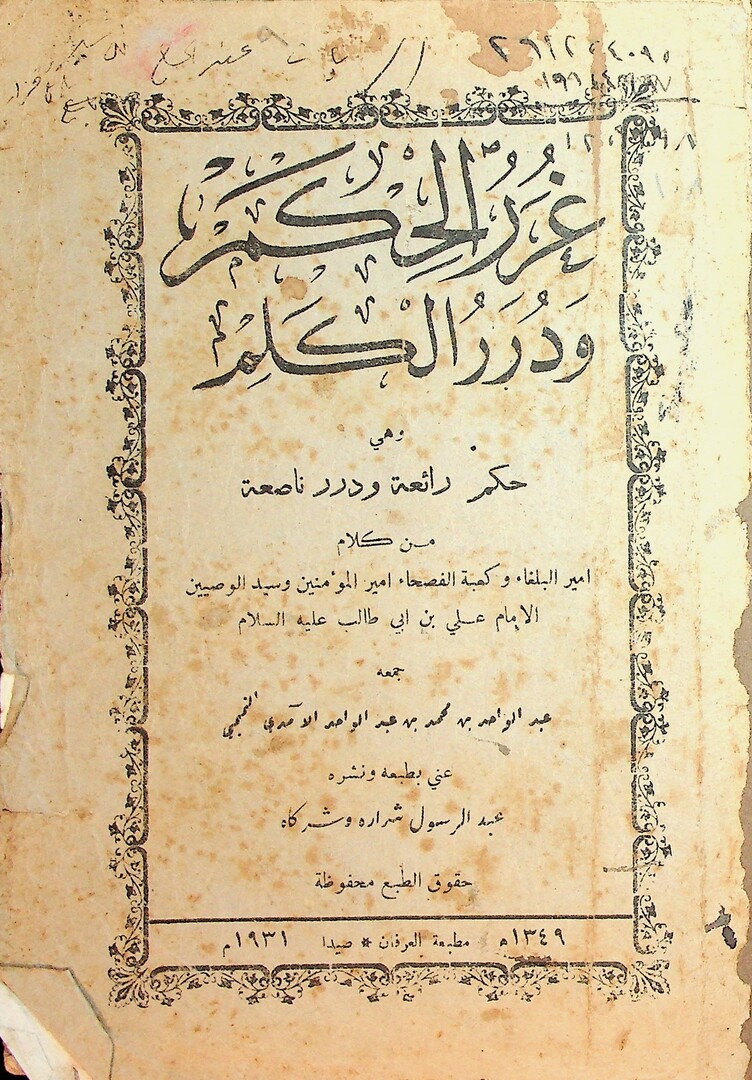 ٢٦١٢٢٤٠٩٥
غُرَرُ الحِكَمِ
وَدُرَرُ الكَلِمِ
وهي
حكم رائعة ودرر ناصعة
من كلام
امير البلغاء وكعبة الفصحاء امير المؤمنين وسيد الوصيين
الإمام علي بن ابي طالب عليه السلام
جمعه
عبد الواحد بن محمد بن عبد الواحد الآمدي التميمي
عني بطبعه ونشره
عبد الرسول شراره وشركاه
حقوق الطبع محفوظة
١٣٤٩ه مطبعة العرفان * صيدا ١٩٣١م